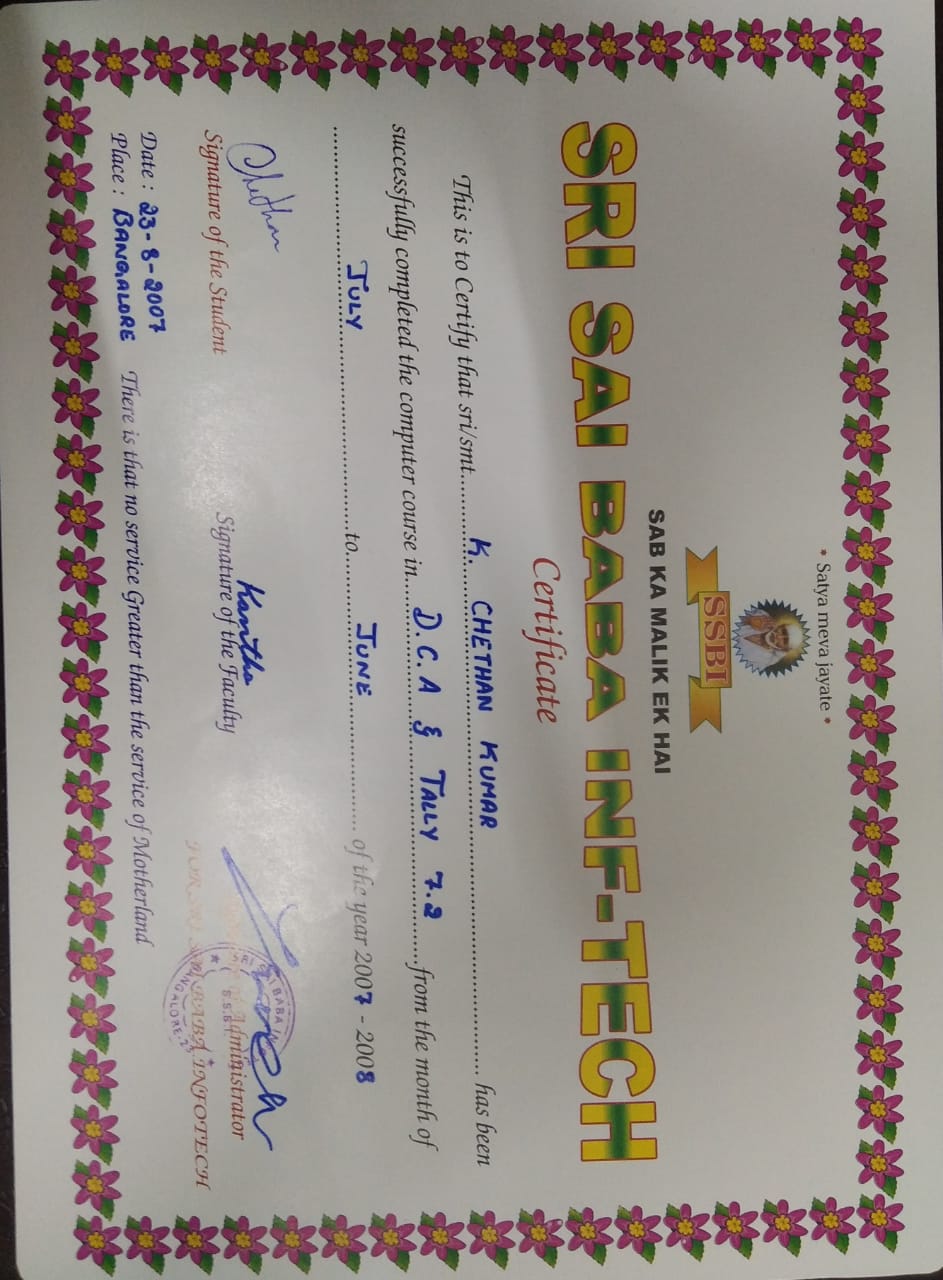 * Satya meva jayate *
SSBI
SAB KA MALIK EK HAI
SRI SAI BABA INF-TECH
Certificate
This is to Certify that sri/smt. K. CHETHAN KUMAR has been
successfully completed the computer course in D.C.A & TALLY 7.2 from the month of
JULY to JUNE of the year 2007 - 2008
Chethan Kantha
Signature of the Student Signature of the Faculty Administrator
SAI BABA INFOTECH
Date : 23-8-2007
Place : BANGALORE There is that no service Greater than the service of Motherland